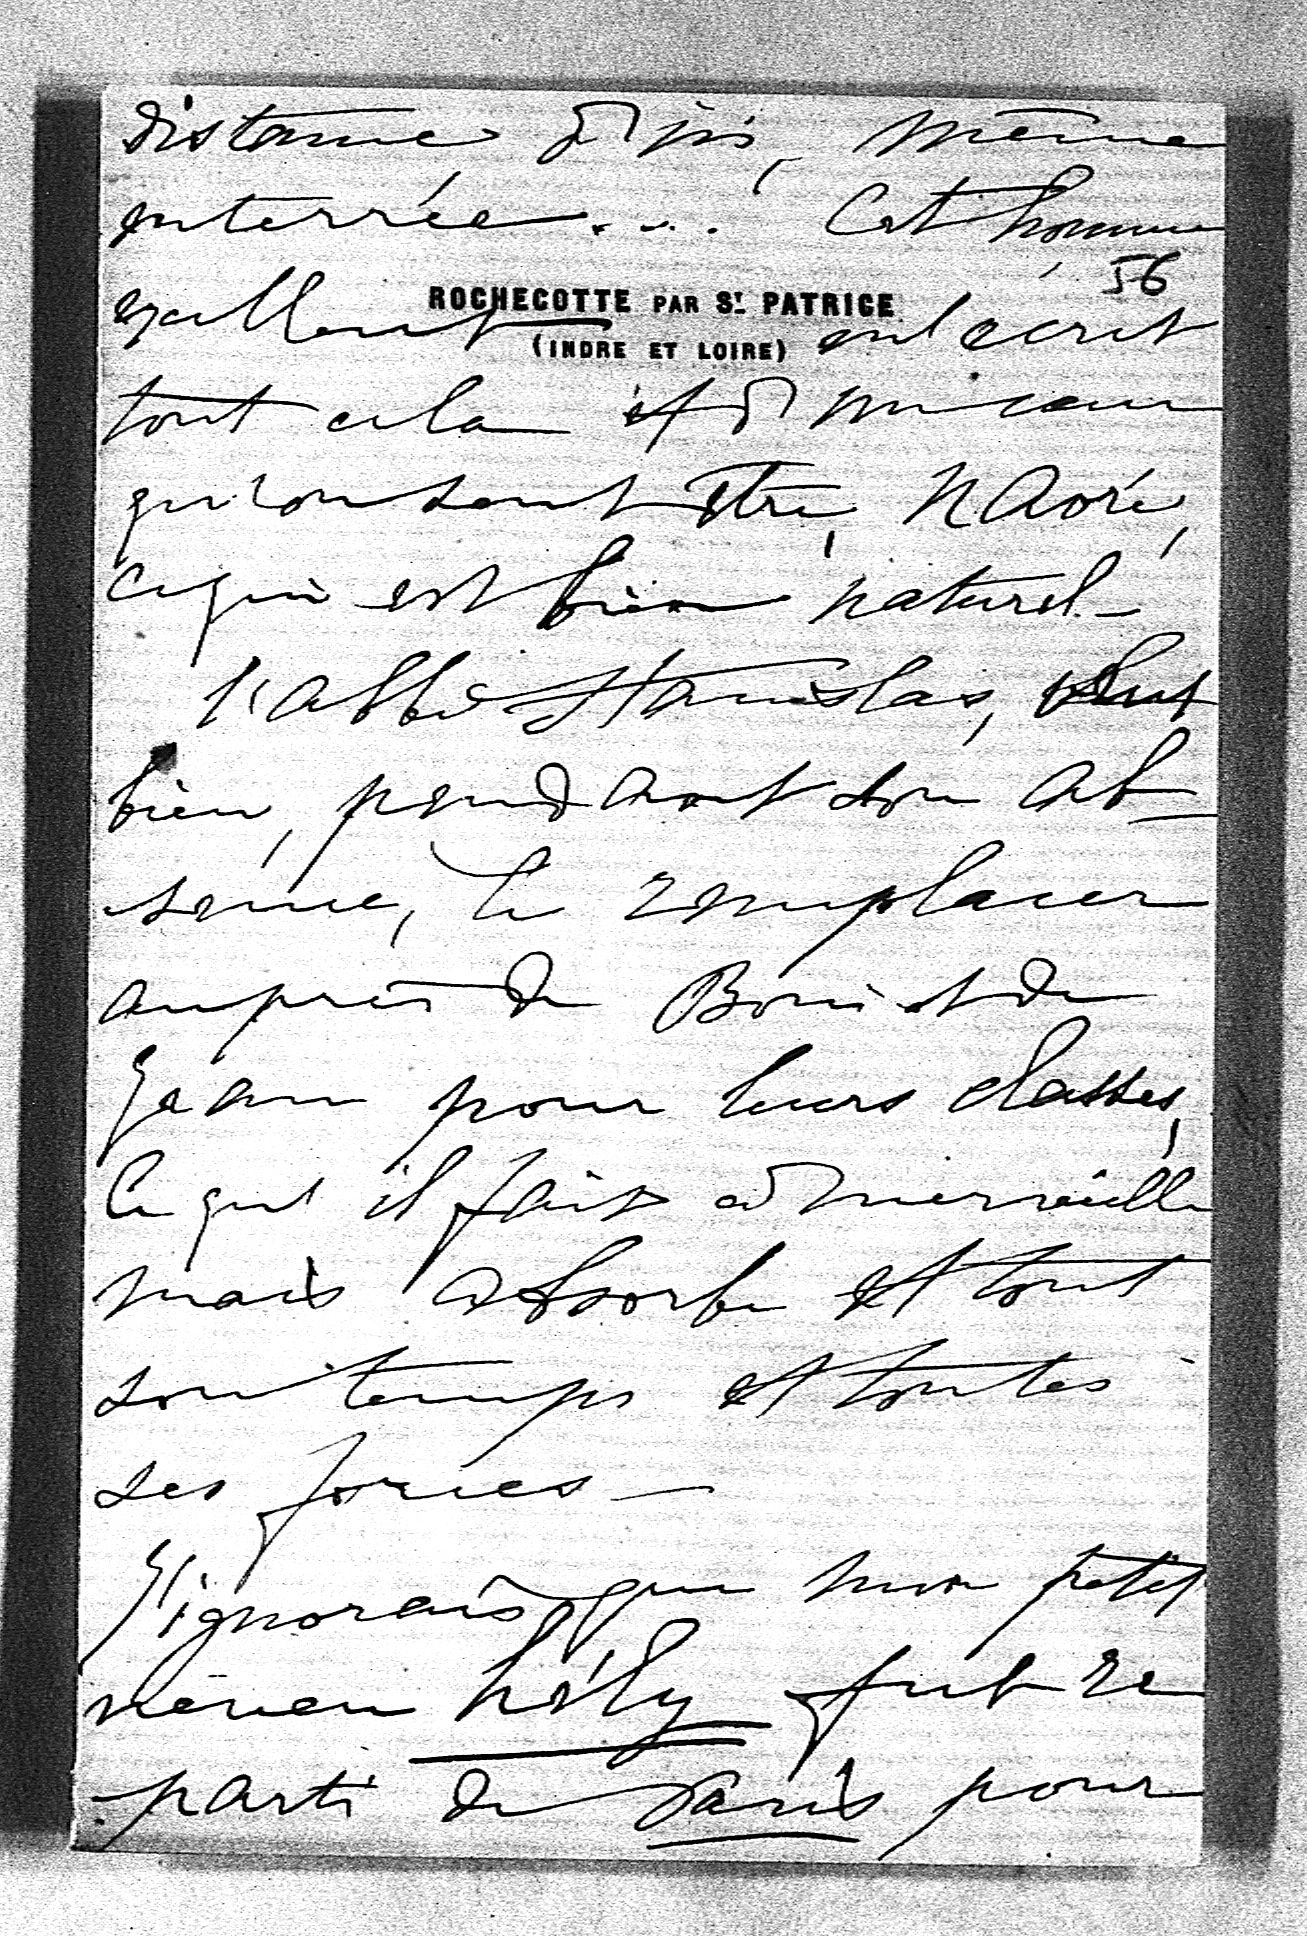 distance, d'ici, même
enterrée.... Cet homme
56
ROCHECOTTE PAR St. PATRICE
(INDRE ET LOIRE)
excellent m'écrit
tout cela et d'un cœur
qu'on sent être, navré,
ce qui est bien naturel.
L'abbé Stanislas, veut
bien, pendant son ab-
sence, le remplacer
auprès de Boni et de
Jean pour leurs classes,
ce qu'il fait à merveille
mais absorbe et tout
son temps et toutes
ses forces —
J'ignorais que mon petit
neveu hély fut re
parti de Paris pour